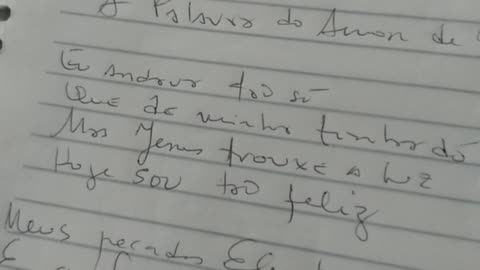 A Palavra do Amor de
Eu andava tão só
Que de minha tinha dó
Mas Jesus trouxe a luz
Hoje sou tão feliz
Meus pecados Ele